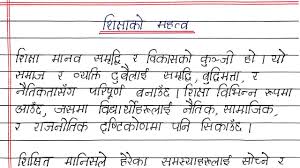 शिक्षाको महत्व
शिक्षा मानव समृद्धि र विकासको कुञ्जी हो। यो
समाज र व्यक्ति दुबैलाई समृद्धि, बुद्धिमता, र
नैतिकतासँग परिपूर्ण बनाउँदछ। शिक्षा विभिन्न रूपमा
आउँदछ, जसमा विद्यार्थीहरूलाई नैतिक, सामाजिक,
र राजनीतिक दृष्टिकोणमा पनि सिकाउँदछ।
शिक्षित मानिसले हरेका समस्याहरूलाई सोच्ने र